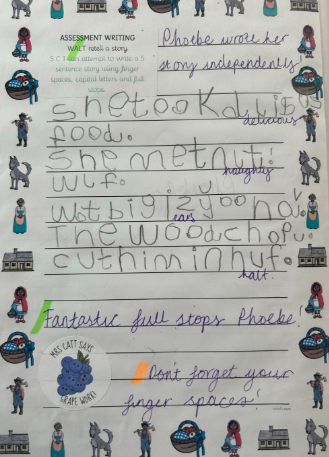 ASSESSMENT WRITING
WALT retell a story
S.C. I can attempt to write a 5
sentence story using finger
spaces, capital letters and full
stops.
Phoebe wrote her
story independently
She took a
delicious
food.
She met
naughty
wlf.
wot big
ears
The woodchop
cut him in huf.
half.
Fantastic full stops Phoebe!
MRS CATT SAYS
GRAPE WORK!
Don't forget your
finger spaces!